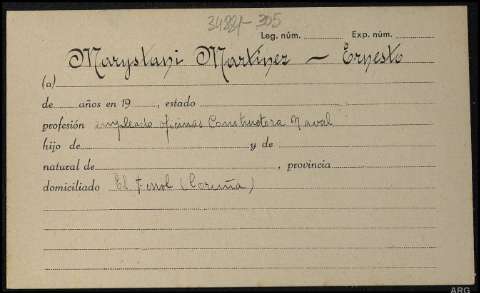 34884-305
Leg. núm. Exp. núm.
Marystani Martínez — Ernesto
(a)
de años en 19 , estado
profesión empleado oficinas Constructora Naval
hijo de y de
natural de , provincia
domiciliado El Ferrol (Coruña)
ARG